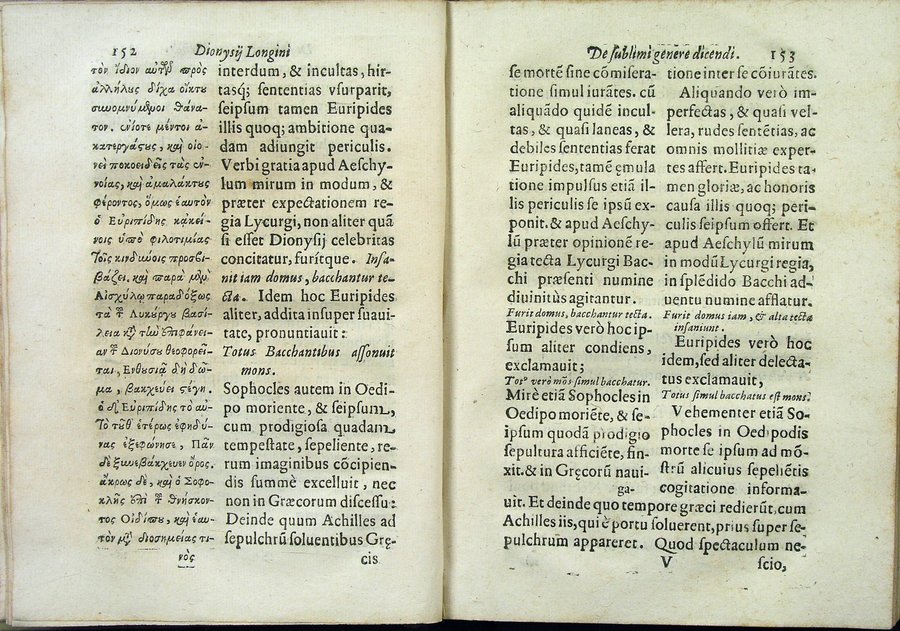 152 Dionysij Longini
τὸν ἴδιον αὐτῶν πρὸς
ἀλλήλους δίχα οἴκτου
συνομνύμενοι θάνα-
τον. ἐνίοτε μέντοι ἀ-
κατεργάστους, καὶ οἱο-
νεὶ ποκοειδεῖς τὰς ἐν-
νοίας, καὶ ἀμαλάκτους
φέροντος, ὅμως ἑαυτὸν
ὁ Εὐριπίδης κἀκεί-
νοις ὑπὸ φιλοτιμίας
τοῖς κινδύνοις προσβι-
βάζει. καὶ παρὰ μὲν
Αἰσχύλῳ παραδόξως
τὰ τοῦ Λυκούργου βασί-
λεια κατὰ τὴν ἐπιφάνει-
αν τοῦ Διονύσου θεοφορεῖ-
ται, Ενθουσιᾷ δὴ δῶ-
μα, βακχεύει στέγη.
ὁ δὲ Εὐριπίδης τὸ αὐ-
τὸ τοῦθ᾽ ἑτέρως ἐφηδύ-
νας ἐξεφώνησε, Πᾶν
δὲ ξυνεβάκχευεν ὄρος.
ἄκρως δὲ, καὶ ὁ Σοφο-
κλῆς ἐπὶ τοῦ θνήσκον-
τος Οἰδίπου, καὶ ἑαυ-
τὸν μετὰ διοσημείας τι-
νὸς
interdum, & incultas, hir-
tasq; sententias vsurparit,
seipsum tamen Euripides
illis quoq; ambitione qua-
dam adiungit periculis.
Verbi gratia apud Aeschy-
lum mirum in modum, &
præter expectationem re-
gia Lycurgi, non aliter quã
si esset Dionysij celebritas
concitatur, furítque. Insa-
nit iam domus, bacchantur te-
cta. Idem hoc Euripides
aliter, addita insuper suaui-
tate, pronuntiauit:
Totus Bacchantibus assonuit
mons.
Sophocles autem in Oedi-
po moriente, & seipsum,
cum prodigiosa quadam
tempestate, sepeliente, re-
rum imaginibus cõcipien-
dis summè excelluit, nec
non in Græcorum discessu:
Deinde quum Achilles ad
sepulchrũ soluentibus Gre-
cis
De sublimi genere dicendi. 153
se mortẽ sine cõmisera-
tione simul iurates. cũ
aliquãdo quidẽ incul
tas, & quasi laneas, &
debiles sententias ferat
Euripides, tamẽ ęmula
tione impulsus etiã il-
lis periculis se ipsũ ex-
ponit. & apud Aeschy-
lũ præter opinionẽ re-
gia tecta Lycurgi Bac-
chi præsenti numine
diuinitùs agitantur.
Furit domus, bacchantur tecta.
Euripides verò hoc ip-
sum aliter condiens,
exclamauit;
Totꝰ verò mõs simul bacchatur.
Mirè etiã Sophocles in
Oedipo moriẽte, & se-
ipsum quodã prodigio
sepultura afficiẽte, fin-
xit. & in Gręcorũ naui-
ga-
tione inter se cõiurãtes.
Aliquando verò im-
perfectas, & quasi vel-
lera, rudes sentẽtias, ac
omnis mollitiæ exper-
tes affert. Euripides ta-
men gloriæ, ac honoris
causa illis quoq; peri-
culis seipsum offert. Et
apud Aeschylũ mirum
in modũ Lycurgi regia,
in splẽdido Bacchi ad-
uentu numine afflatur.
Furit domus iam, & alta tecta
insaniunt.
Euripides verò hoc
idem, sed aliter delecta-
tus exclamauit,
Totus simul bacchatus est mons.
Vehementer etiã So-
phocles in Oedipodis
morte se ipsum ad mõ-
strũ alicuius sepeliẽtis
cogitatione informa-
uit. Et deinde quo tempore græci redierũt, cum
Achilles iis, qui è portu soluerent, prius super se-
pulchrum appareret. Quod spectaculum ne-
V scio,